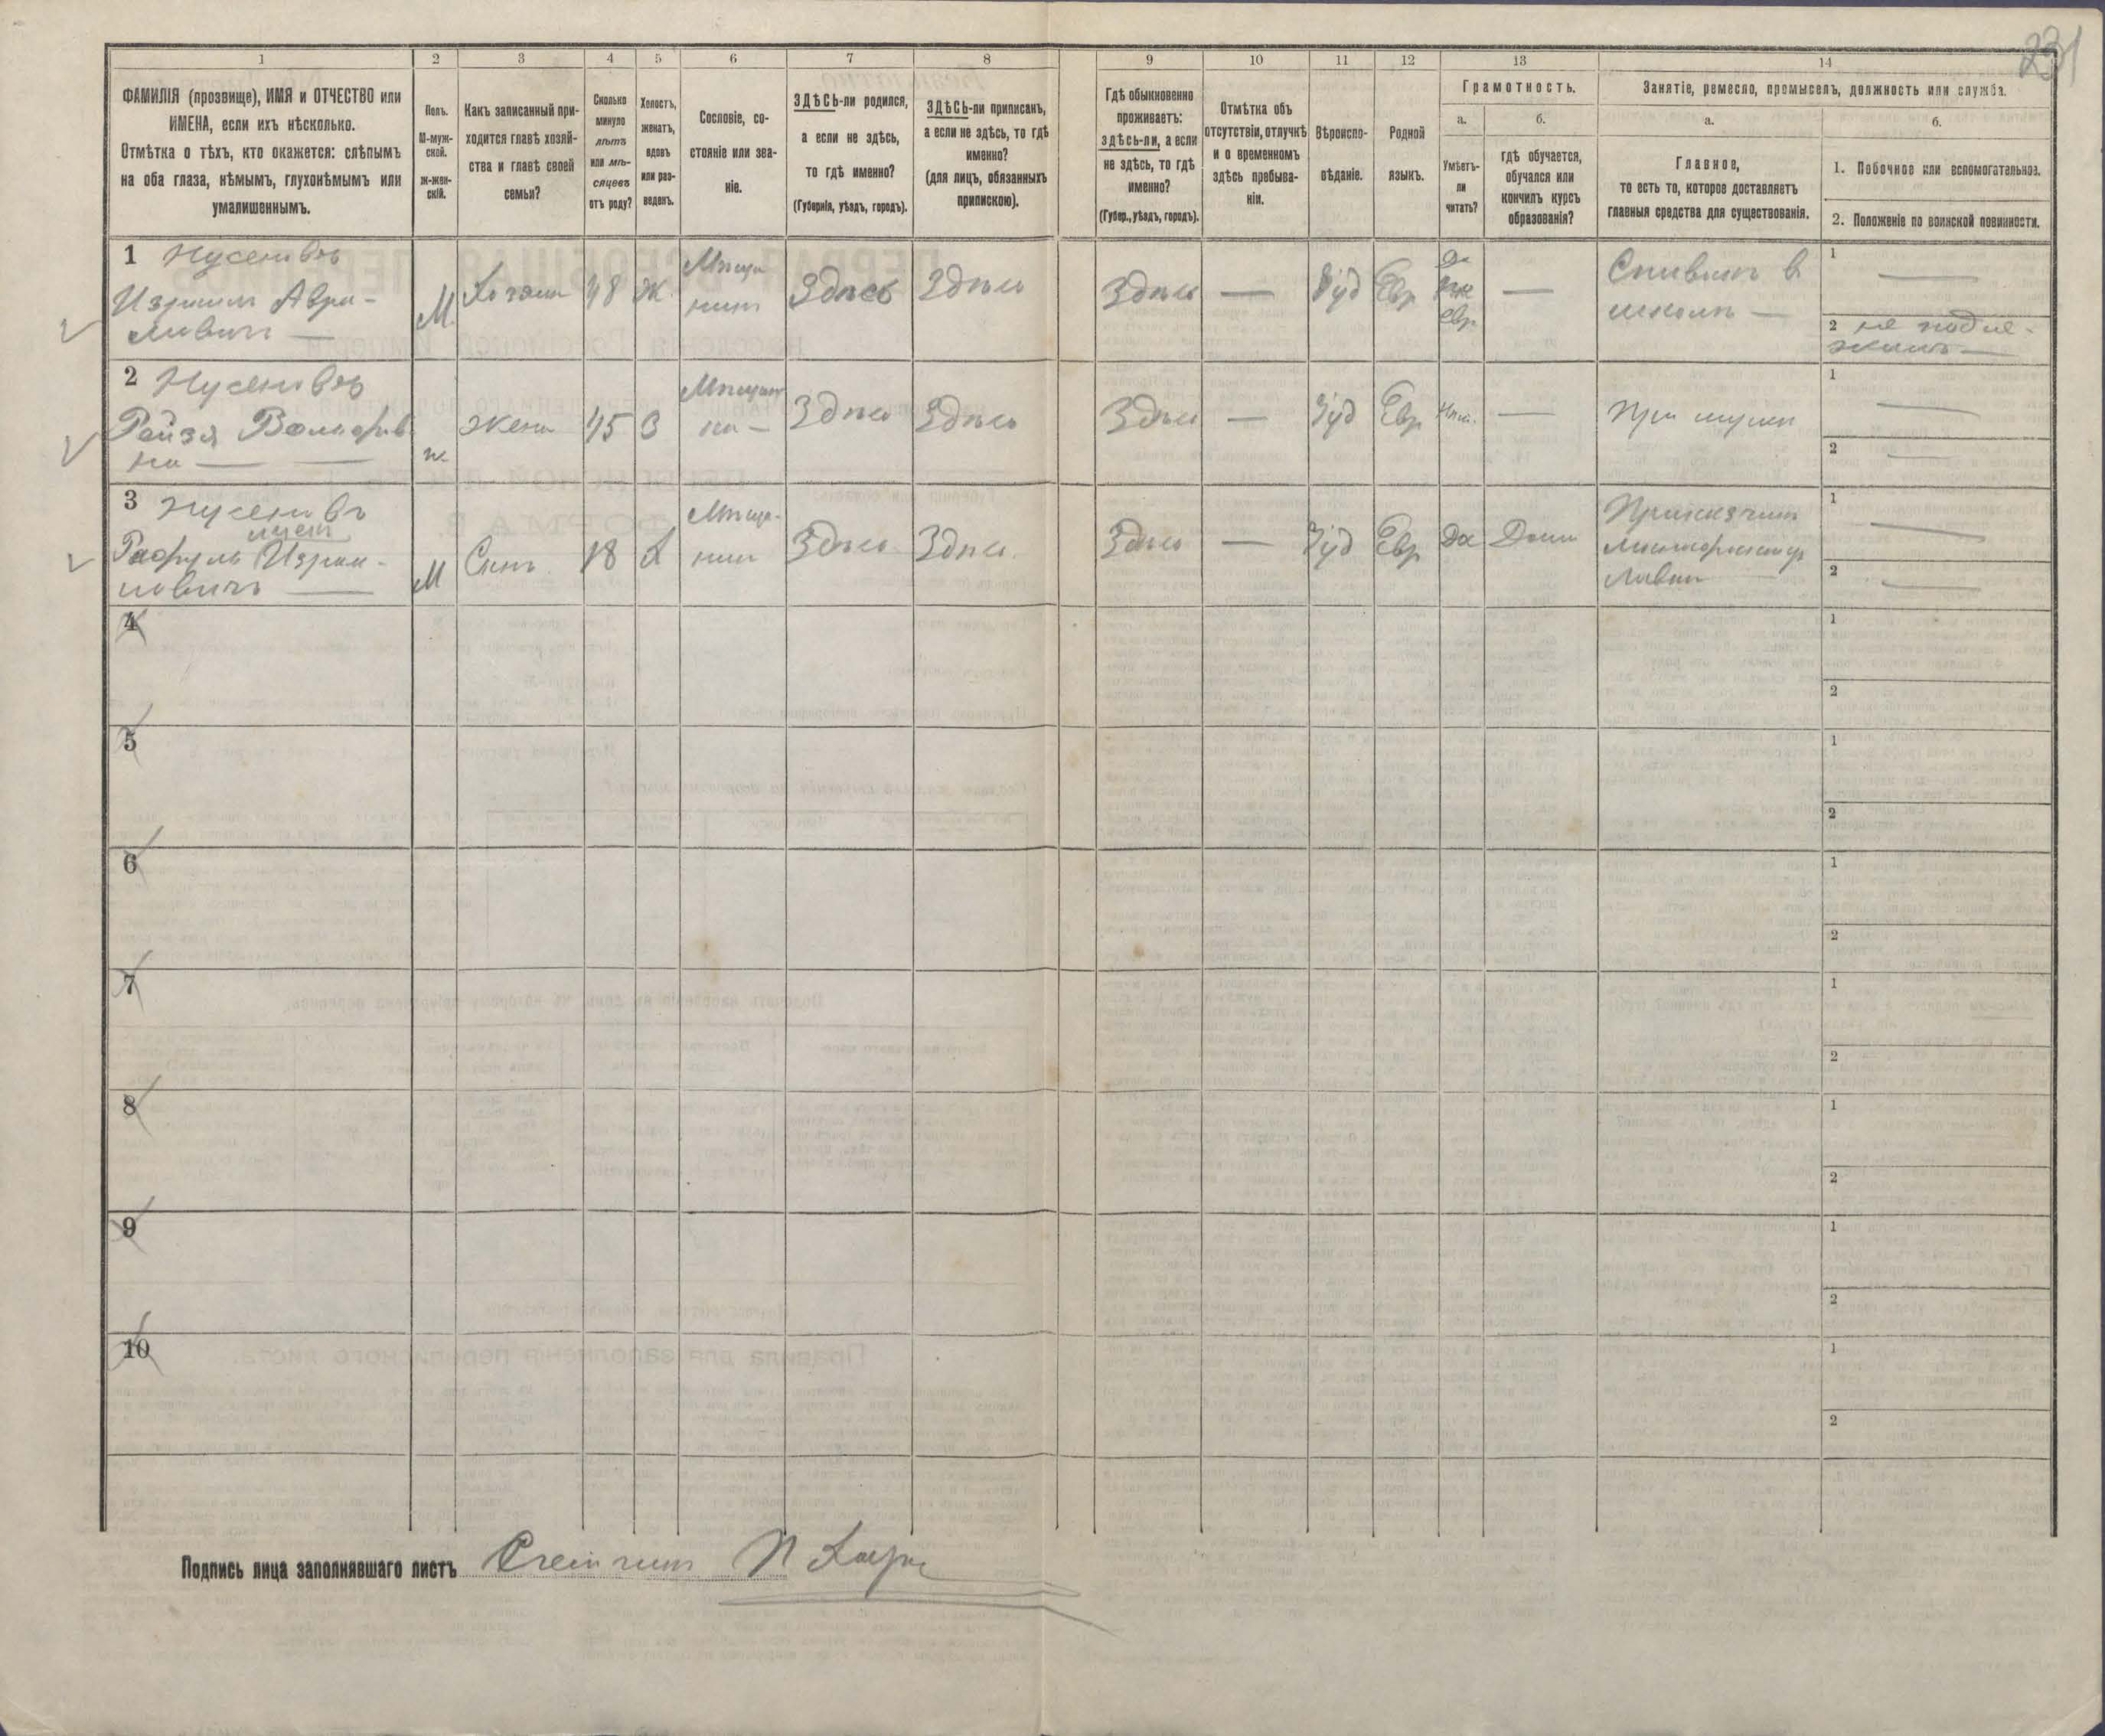 231
1 2 3 4 5 6 7 8 9 10 11 12 13 14
ФАМИЛІЯ (прозвище), ИМЯ и ОТЧЕСТВО или
ИМЕНА, если ихъ нѣсколько.
Отмѣтка о тѣхъ, кто окажется: слѣпымъ
на оба глаза, нѣмымъ, глухонѣмымъ или
умалишеннымъ.
Полъ.
М-муж-
ской.
ж-жен-
скій.
Какъ записанный при-
ходится главѣ хозяй-
ства и главѣ своей
семьи?
Сколько
минуло
лѣтъ
или мѣ-
сяцевъ
отъ роду?
Холостъ,
женатъ,
вдовъ
или раз-
веденъ.
Сословіе, со-
стояніе или зва-
ніе.
ЗДѢСЬ-ли родился,
а если не здѣсь,
то гдѣ именно?
(Губернія, уѣздъ, городъ).
ЗДѢСЬ-ли приписанъ,
а если не здѣсь, то гдѣ
именно?
(для лицъ, обязанныхъ
припискою).
Гдѣ обыкновенно
проживаетъ:
здѣсь-ли, а если
не здѣсь, то гдѣ
именно?
(Губер., уѣздъ, городъ).
Отмѣтка объ
отсутствіи, отлучкѣ
и о временномъ
здѣсь пребыва-
ніи.
Вѣроиспо-
вѣданіе.
Родной
языкъ.
Грамотность.
а.
Умѣетъ-
ли
читать?
б.
гдѣ обучается,
обучался или
кончилъ курсъ
образованія?
Занятіе, ремесло, промыселъ, должность или служба.
а.
Главное,
то есть то, которое доставляетъ
главныя средства для существованія.
б.
1. Побочное или вспомогательное.
2. Положеніе по воинской повинности.
1
Израиль Авра-
М. Хозяин 48 Ж. Мѣща
нин Здѣсь Здѣсь Здѣсь — Іуд Евр Да
Евр — 1 —
2 не подле-
жит —
2
Рейзя
на — ж Жена 45 З Мѣщан
ка — Здѣсь Здѣсь Здѣсь — Іуд Евр — При муже 1 —
2 —
3
Израи-
левичъ — М Сынъ 18 Х Мѣща-
нин Здѣсь Здѣсь. Здѣсь — Іуд Евр Да Дома Приказчик 1 —
2 —
4 1
2
5 1
2
6 1
2
7 1
2
8 1
2
9 1
2
10 1
2
Подпись лица заполнявшаго листъ